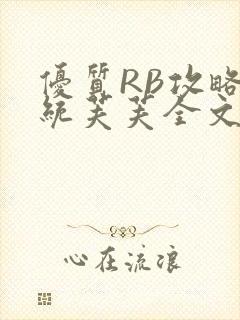 優質RB攻略
統芙芙全文
心在流浪